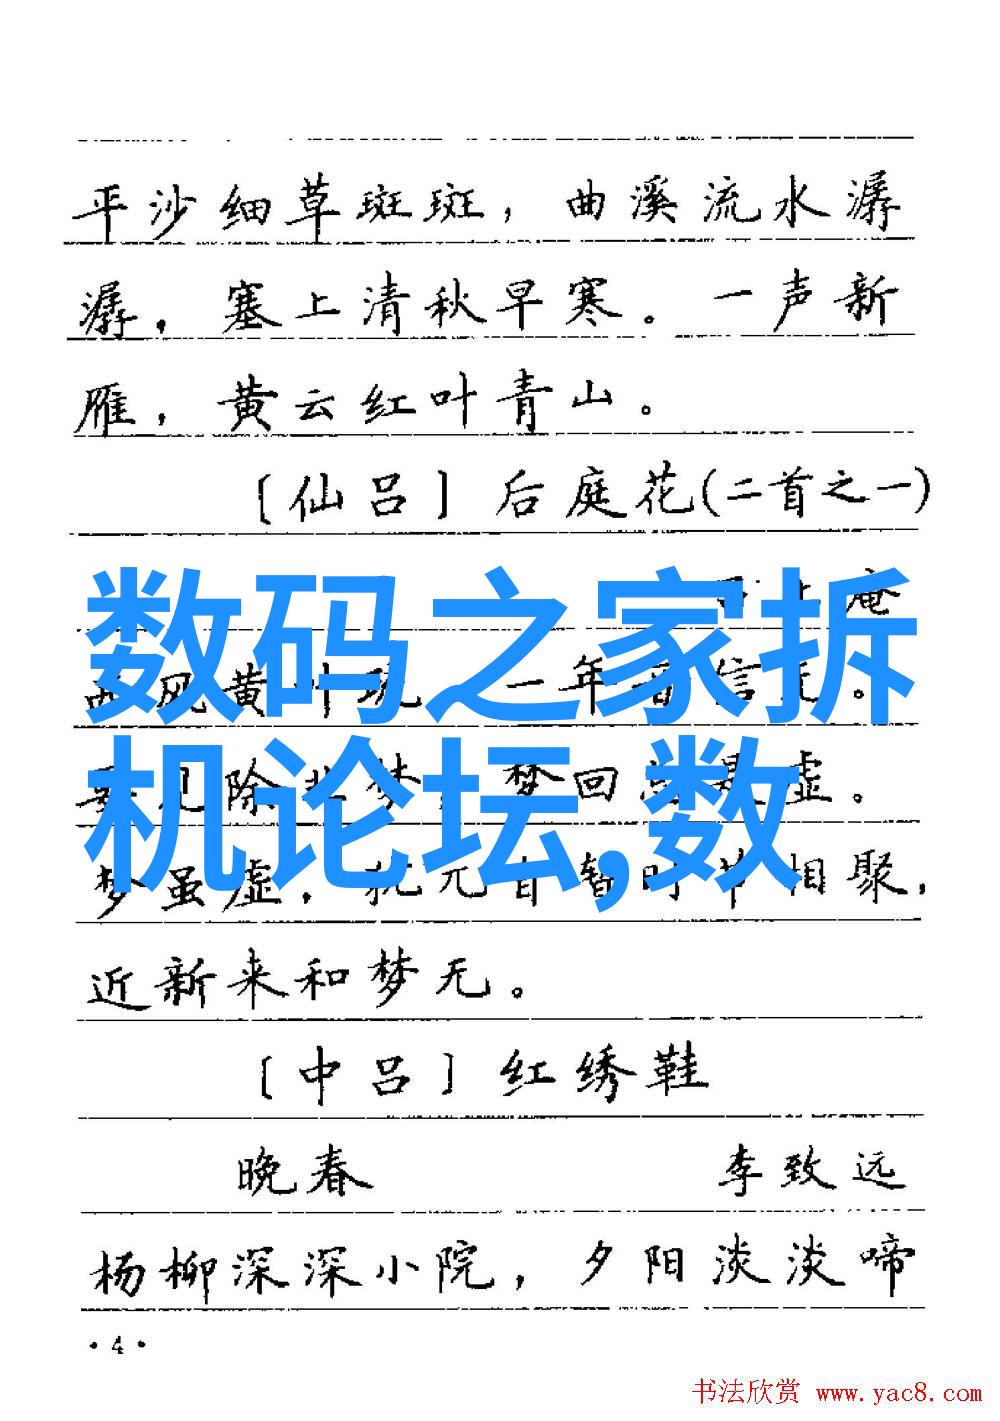 平沙细草斑斑，曲溪流水潺
潺，塞上清秋早寒。一声新
雁，黄云红叶青山。
〔仙吕〕后庭花(二首之一)
数码之家拆
庵
黄 一年 信
机论坛,数
除 梦 梦回 是虚。
梦虽虚，犹 自暂时节相聚，
近新来和梦无。
〔中吕〕红绣鞋
晚春 李致远
杨柳深深小院，夕阳淡淡啼
·4·
书法欣赏 www.yac8.com